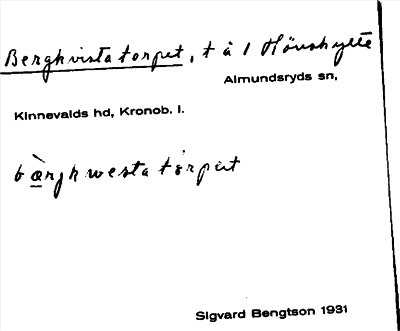 Berghvistatorpet, t å 1 Hönshylte
Almundsryds sn,
Kinnevalds hd, Kronob. l.
bærghwestatorpet
Sigvard Bengtson 1931